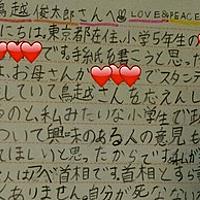 鳥越俊太郎さんへ LOVE&PEACE
にちは。東京都在住、小学5年生の
です。手紙を書こうと思った
は、お母さんが でスタン
していて鳥越さんを応えんし
のと、私みたいな小学生で政
ついて興味のある人の意見も
てほしいと思ったからです。私が
んはアベ首相です。首相とすら
くありません。自分が死なない